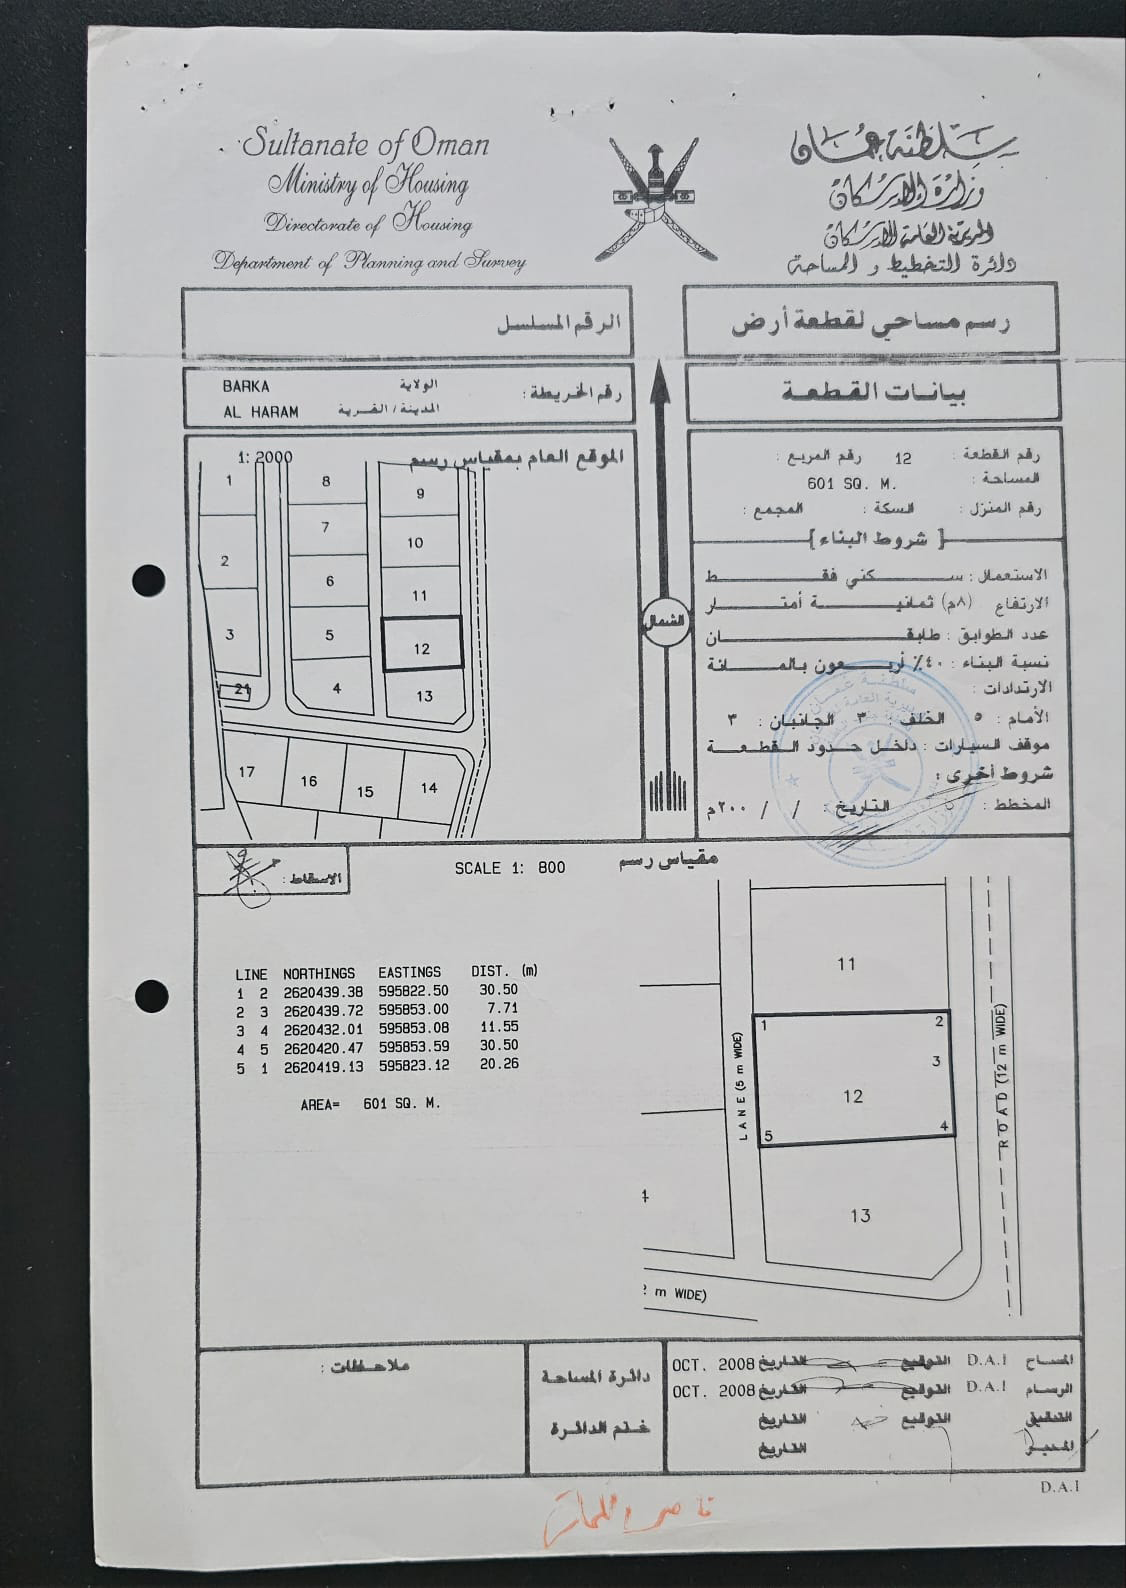 Sultanate of Oman
Ministry of Housing
Directorate of Housing
Department of Planning and Survey
سلطنة عمان
وزارة الإسكان
المديرية العامة للإسكان
دائرة التخطيط و المساحة
رسم مساحي لقطعة أرض
الرقم المسلسل
بيانات القطعة
رقم الخريطة :
الولاية BARKA
المدينة / القرية AL HARAM
الموقع العام بمقياس رسم 1: 2000
1
2
3
21
8
7
6
5
4
9
10
11
12
13
17
16
15
14
الشمال
رقم القطعة : 12 رقم المربع :
المساحة : 601 SQ. M.
رقم المنزل : السكة : المجمع :
[ شروط البناء ]
الاستعمال : سكني فقط
الارتفاع (٨م) ثمانية أمتار
عدد الطوابق : طابقان
نسبة البناء : ٤٠٪ أربعون بالمائة
الارتدادات :
الأمام : ٥ الخلف : ٣ الجانبان : ٣
موقف السيارات : داخل حدود القطعة
شروط أخرى :
المخطط : التاريخ : / / ٢٠٠م
سلطنة عمان
الاسقاط :
SCALE 1: 800 مقياس رسم
LINE NORTHINGS EASTINGS DIST. (m)
1 2 2620439.38 595822.50 30.50
2 3 2620439.72 595853.00 7.71
3 4 2620432.01 595853.08 11.55
4 5 2620420.47 595853.59 30.50
5 1 2620419.13 595823.12 20.26
AREA= 601 SQ. M.
11
1
2
3
12
4
5
13
4
LANE (5 m WIDE)
ROAD (12 m WIDE)
2 m WIDE)
المساح D.A.I التوقيع التاريخ OCT. 2008
الرسام D.A.I التوقيع التاريخ OCT. 2008
التدقيق التوقيع التاريخ
المدير التاريخ
دائرة المساحة
ختم الدائرة
ملاحظات :
D.A.I